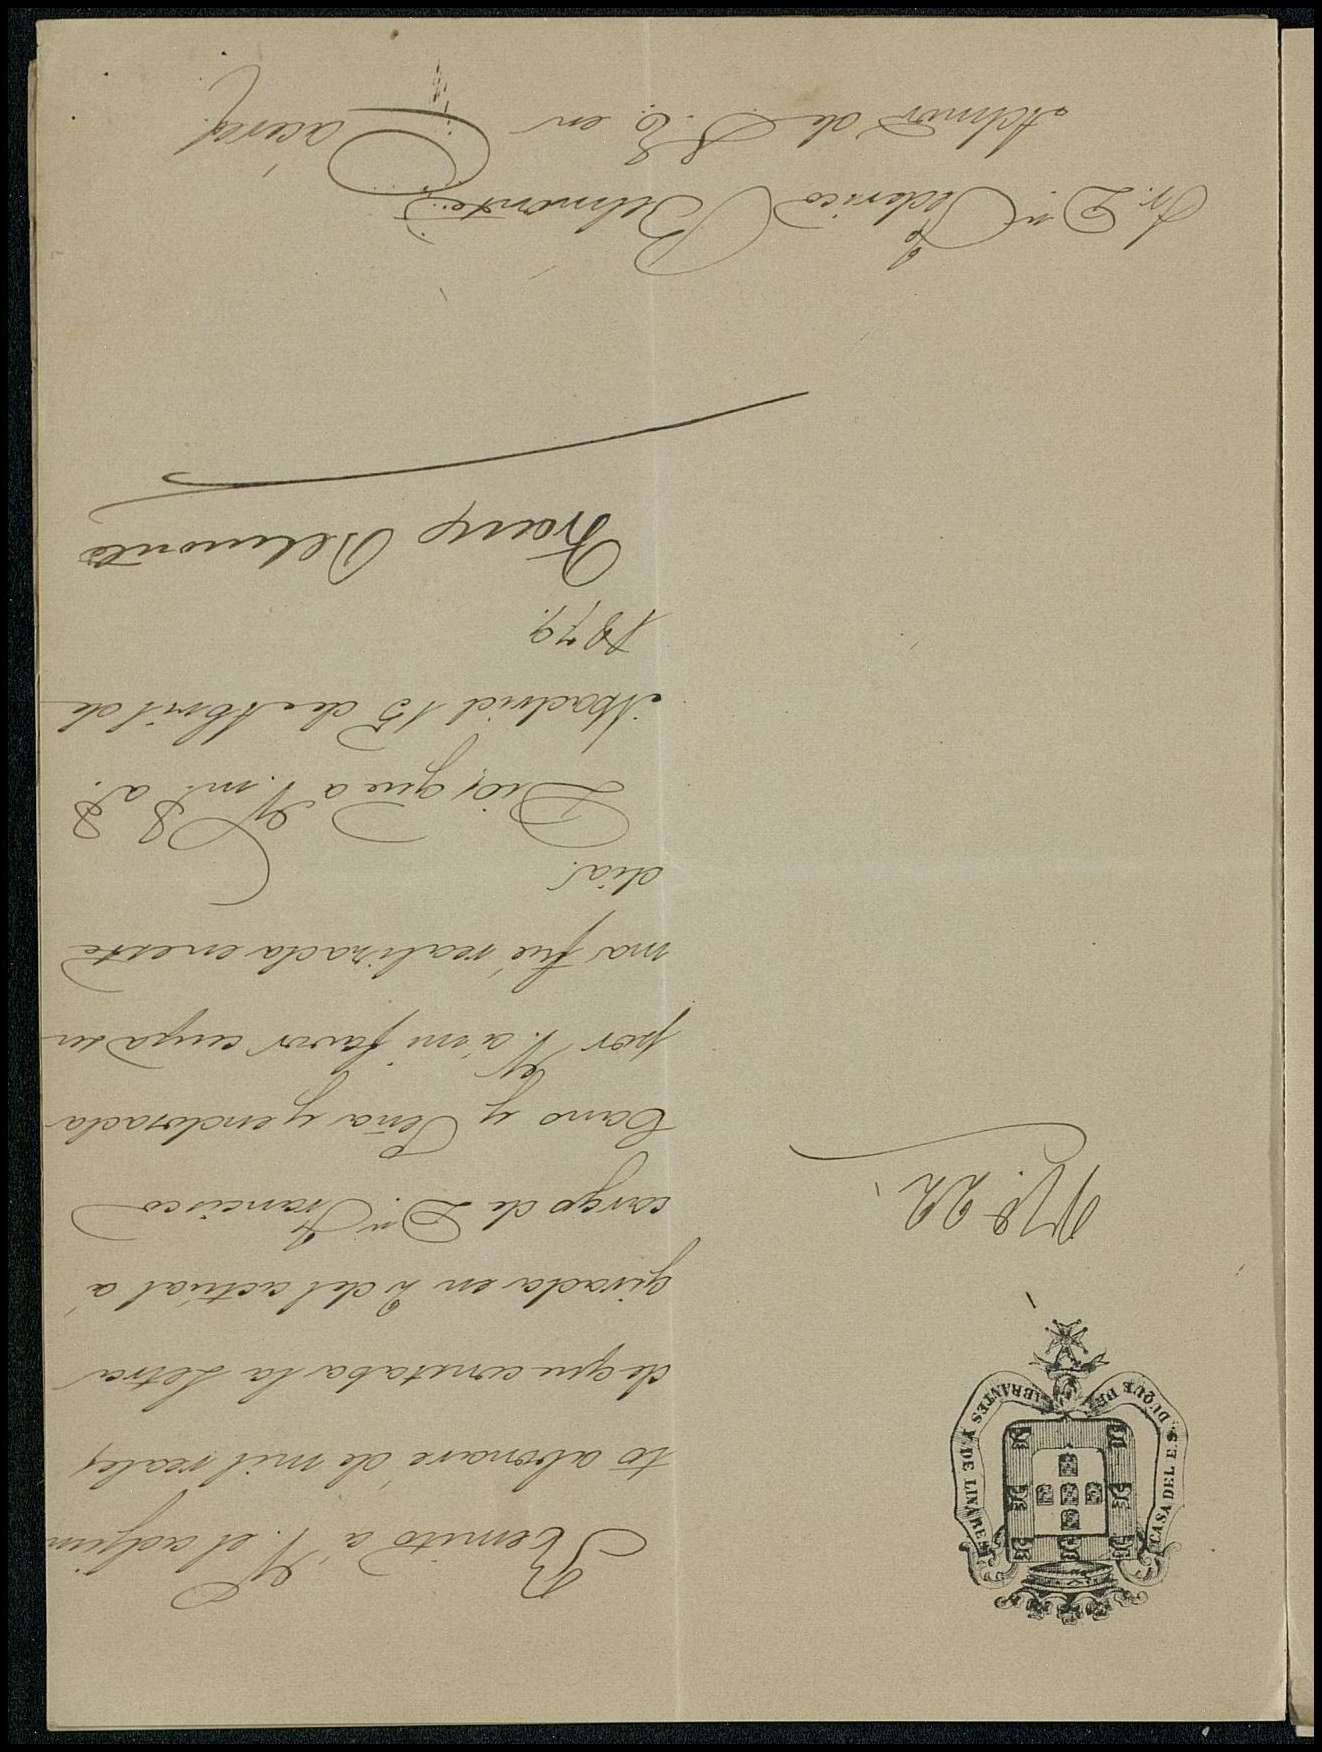 CASA DEL E.S. DUQUE DE ABRANTES Y DE LINARES
Nº 22.
Remito á V. el adjun
to abonaré de mil reales
de que constaba la Letra
girada en 2 del actual á
cargo de Dn. Francisco
Cano y Peña y endosada
por V. á mi favor cuya su
ma fué realizada en este
dia.
Dios gue a V. ms. as.
Madrid 15 de Abril de
1879.
Franco Belmonte
Sr. Dn. Federico Belmonte
Admor de S. E. en